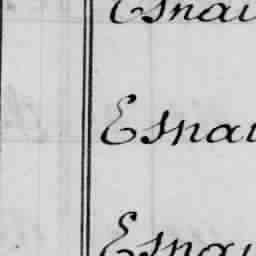 Esnau
Esnau
Esnau